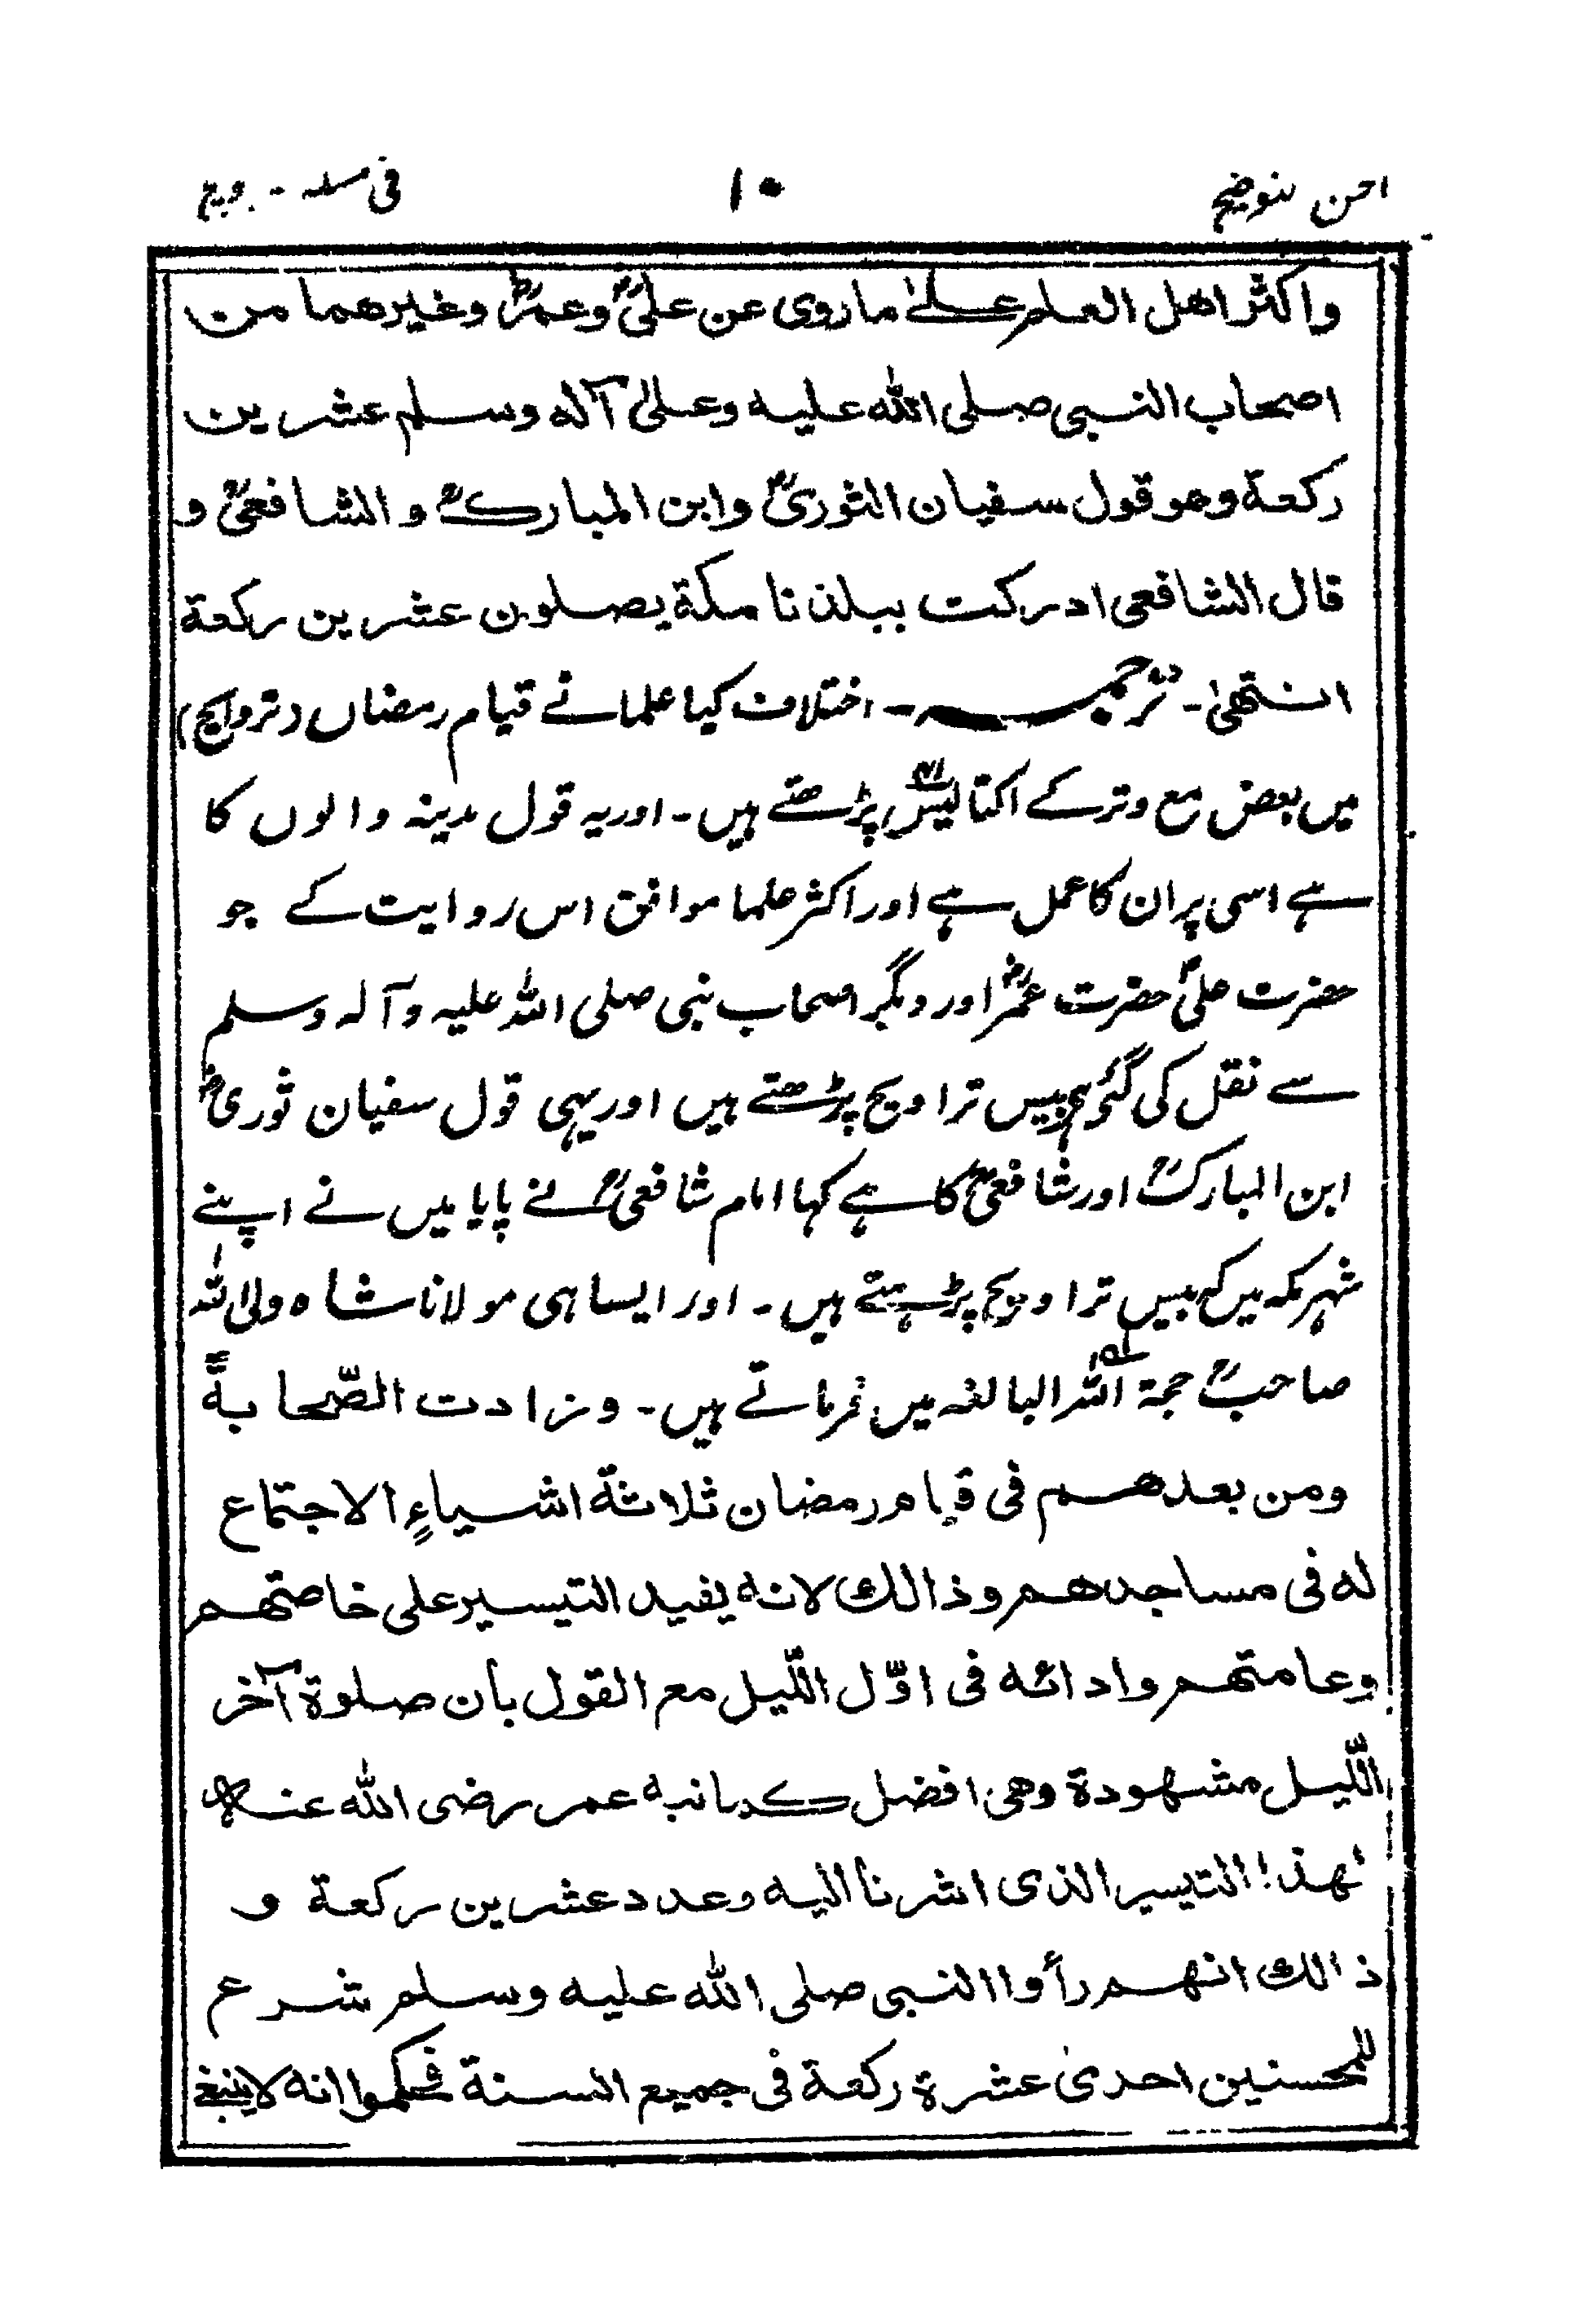 احسن التوضیح ۱۰ فی مسئلۃ التراویح
واکثر اهل العلم علیٰ ماروی عن علیؓ وعمرؓ وغیرهما من
اصحاب النبی صلی الله علیه وعلیٰ آله وسلم عشرین
رکعة وهو قول سفیان الثوریؒ وابن المبارکؒ والشافعیؒ و
قال الشافعی ادرکت ببلدنا مکة یصلون عشرین رکعة
انتهیٰ۔ ترجمہ۔ اختلاف کیا علمانے قیام رمضان (تراویح)
میں بعض مع وتر کے اکتالیسؔ پڑھتے ہیں۔ اور یہ قول مدینہ والوں کا
ہے اسی پر ان کا عمل ہے اور اکثر علما موافق اس روایت کے جو
حضرت علیؓ حضرت عمرؓ اور دیگر اصحاب نبی صلی اللہ علیہ وآلہ وسلم
سے نقل کی گئی ہے بیس تراویح پڑھتے ہیں اور یہی قول سفیان ثوریؒ
ابن المبارکؒ اور شافعیؒ کا ہے کہا امام شافعیؒ نے پایا میں نے اپنے
شہر مکہ میں کہ بیس تراویح پڑہتے ہیں۔ اور ایسا ہی مولانا شاہ ولی اللہ
صاحبؒ حجۃ اللہ البالغہ میں فرماتے ہیں۔ وزادت الصّحابةُ
ومن بعدهم فی قیام رمضان ثلاثة اشیاءٍ الاجتماع
له فی مساجدهم وذالك لانه یفید التیسیر علی خاصتهم
وعامتهم وادائه فی اوّل اللّیل مع القول بأن صلوة آخر
اللّیل مشهودة وهی افضل کما نبه عمر رضی الله عنه
لهذا التیسیر الذی اشرنا الیه وعدد عشرین رکعة و
ذالك انهم رأوا النبی صلی الله علیه وسلم شرع
للمحسنین احدیٰ عشرة رکعة فی جمیع السنة فحکموا انه لاینبغی